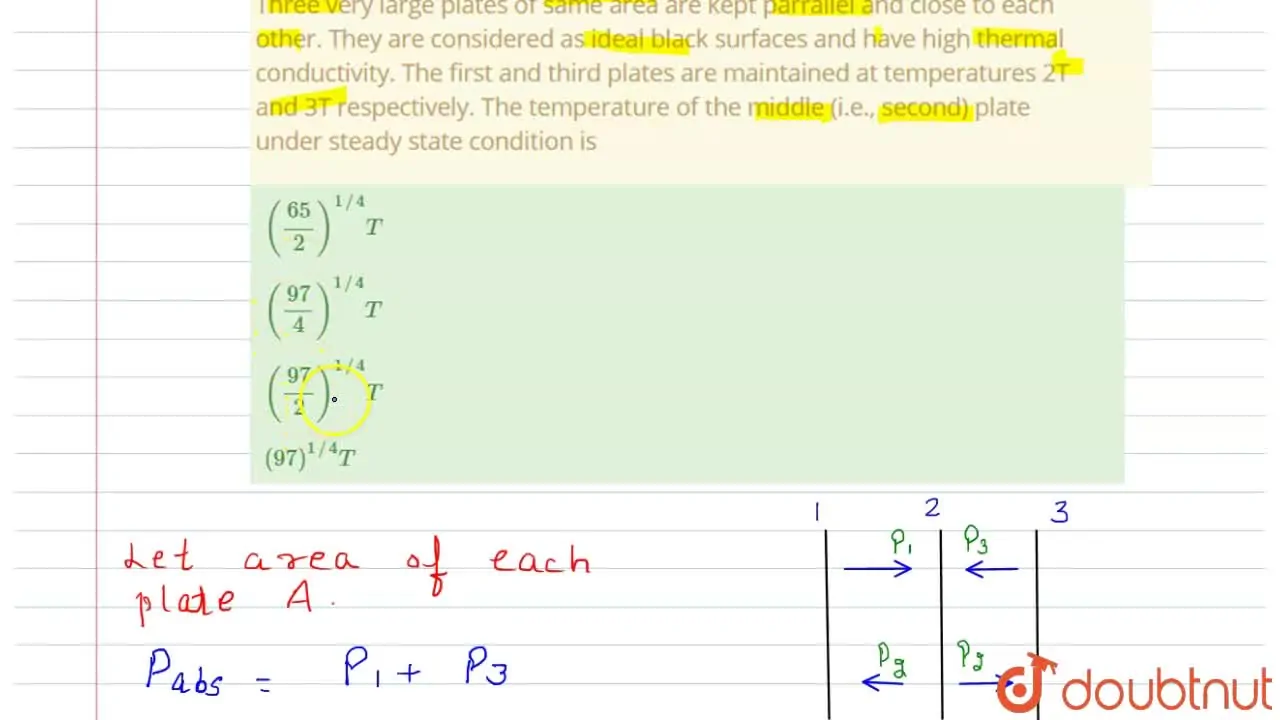 Three very large plates of same area are kept parrallel and close to each
other. They are considered as ideal black surfaces and have high thermal
conductivity. The first and third plates are maintained at temperatures 2T
and 3T respectively. The temperature of the middle (i.e., second) plate
under steady state condition is
(65/2)^1/4 T
(97/4)^1/4 T
(97/2)^1/4 T
(97)^1/4 T
1 2 3
P1 P3
Let area of each
plate A.
P2 P2
Pabs = P1 + P3
doubtnut